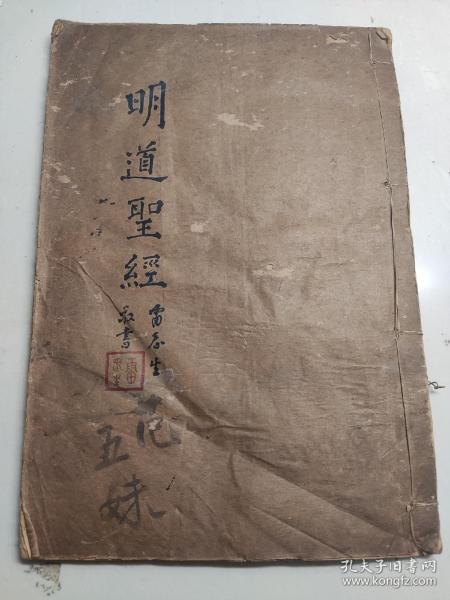 明道聖經
雷永生
敬書
范
五妹
孔夫子旧书网
www.kongfz.com